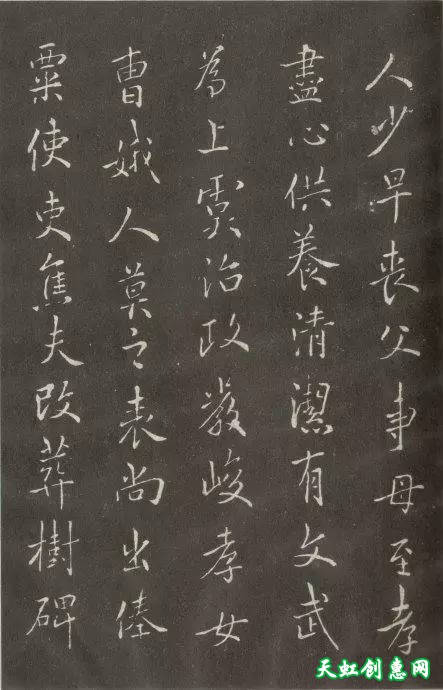 人少早喪父事母至孝
盡心供養清潔有文武
為上虞治政嚴峻孝女
曹娥人莫之表尚出俸
粟使吏焦夫改葬樹碑
天虹创惠网